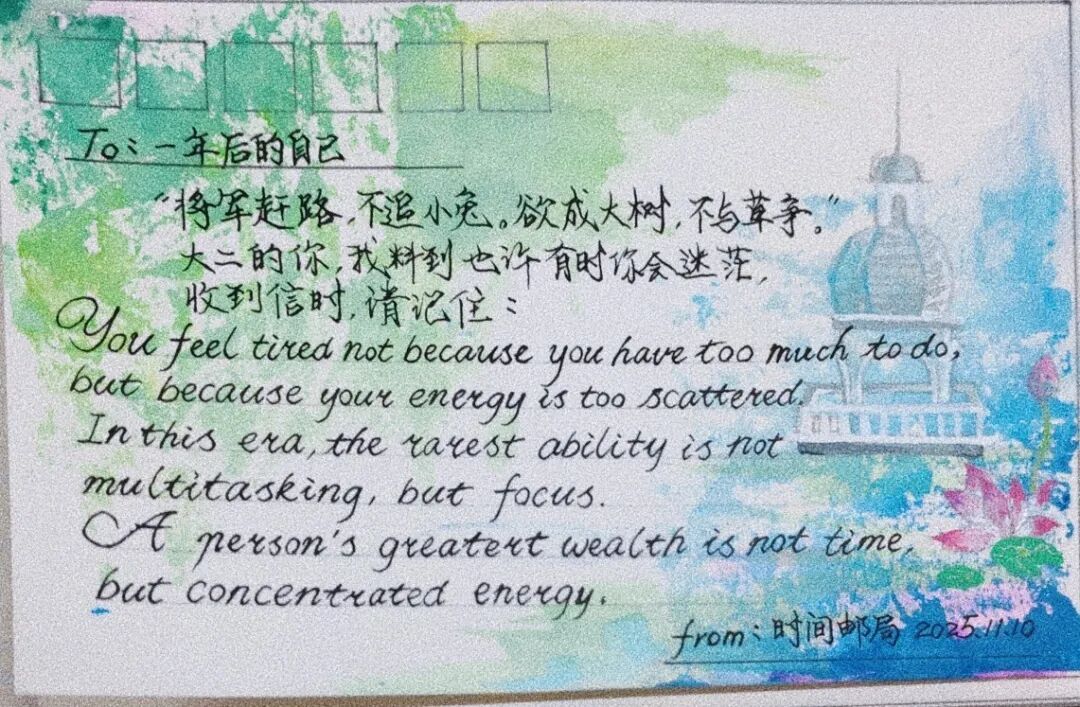 To：一年后的自己
“将军赶路，不追小兔。欲成大树，不与草争。”
大二的你，我料到也许有时你会迷茫，
收到信时，请记住：
You feel tired not because you have too much to do,
but because your energy is too scattered.
In this era, the rarest ability is not
multitasking, but focus.
A person's greatert wealth is not time,
but concentrated energy.
from：时间邮局 2025.11.10